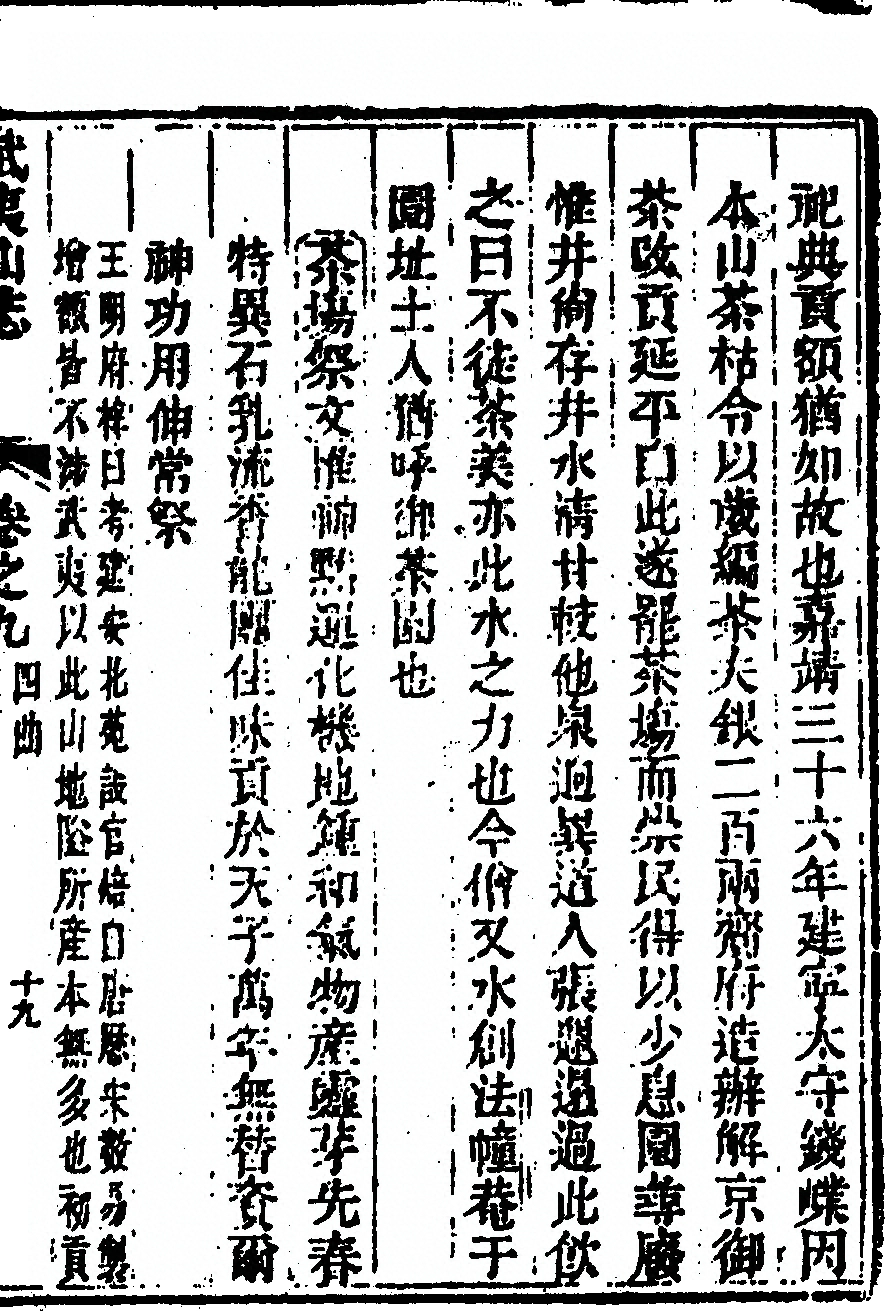 祀典貢額猶如故也嘉靖三十六年建寧太守錢嶫因
本山茶枯令以歲編茶夫銀二百兩齎府造辦解京御
茶改貢延平自此遂罷茶場而崇民得以少息園尋廢
惟井尚存井水清甘較他泉迥異道人張邋遢過此飲
之曰不徒茶美亦此水之力也今俗又水創法幢菴于
園址土人猶呼御茶園也
茶場祭文惟神黙運化機地鍾和氣物產靈芽先春
特異石乳流香龍團佳味貢於天子萬年無替資爾
神功用伸常祭
王明府梓曰考建安北苑設官焙自唐歷宋數易製
增額皆不涉武夷以此山地隘所產本無多也初貢
武夷山志 卷之九 四曲 十九